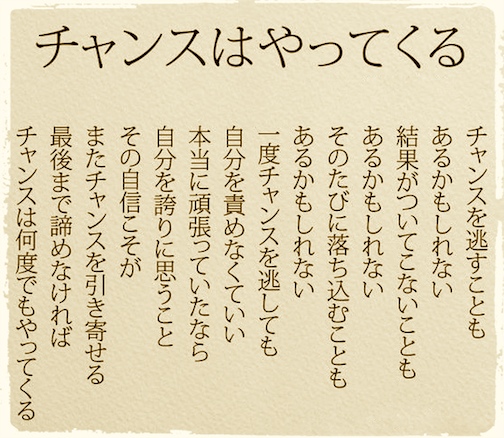 チャンスはやってくる
チャンスを逃すことも
あるかもしれない
結果がついてこないことも
あるかもしれない
そのたびに落ち込むことも
あるかもしれない
一度チャンスを逃しても
自分を責めなくていい
本当に頑張っていたなら
自分を誇りに思うこと
その自信こそが
またチャンスを引き寄せる
最後まで諦めなければ
チャンスは何度でもやってくる